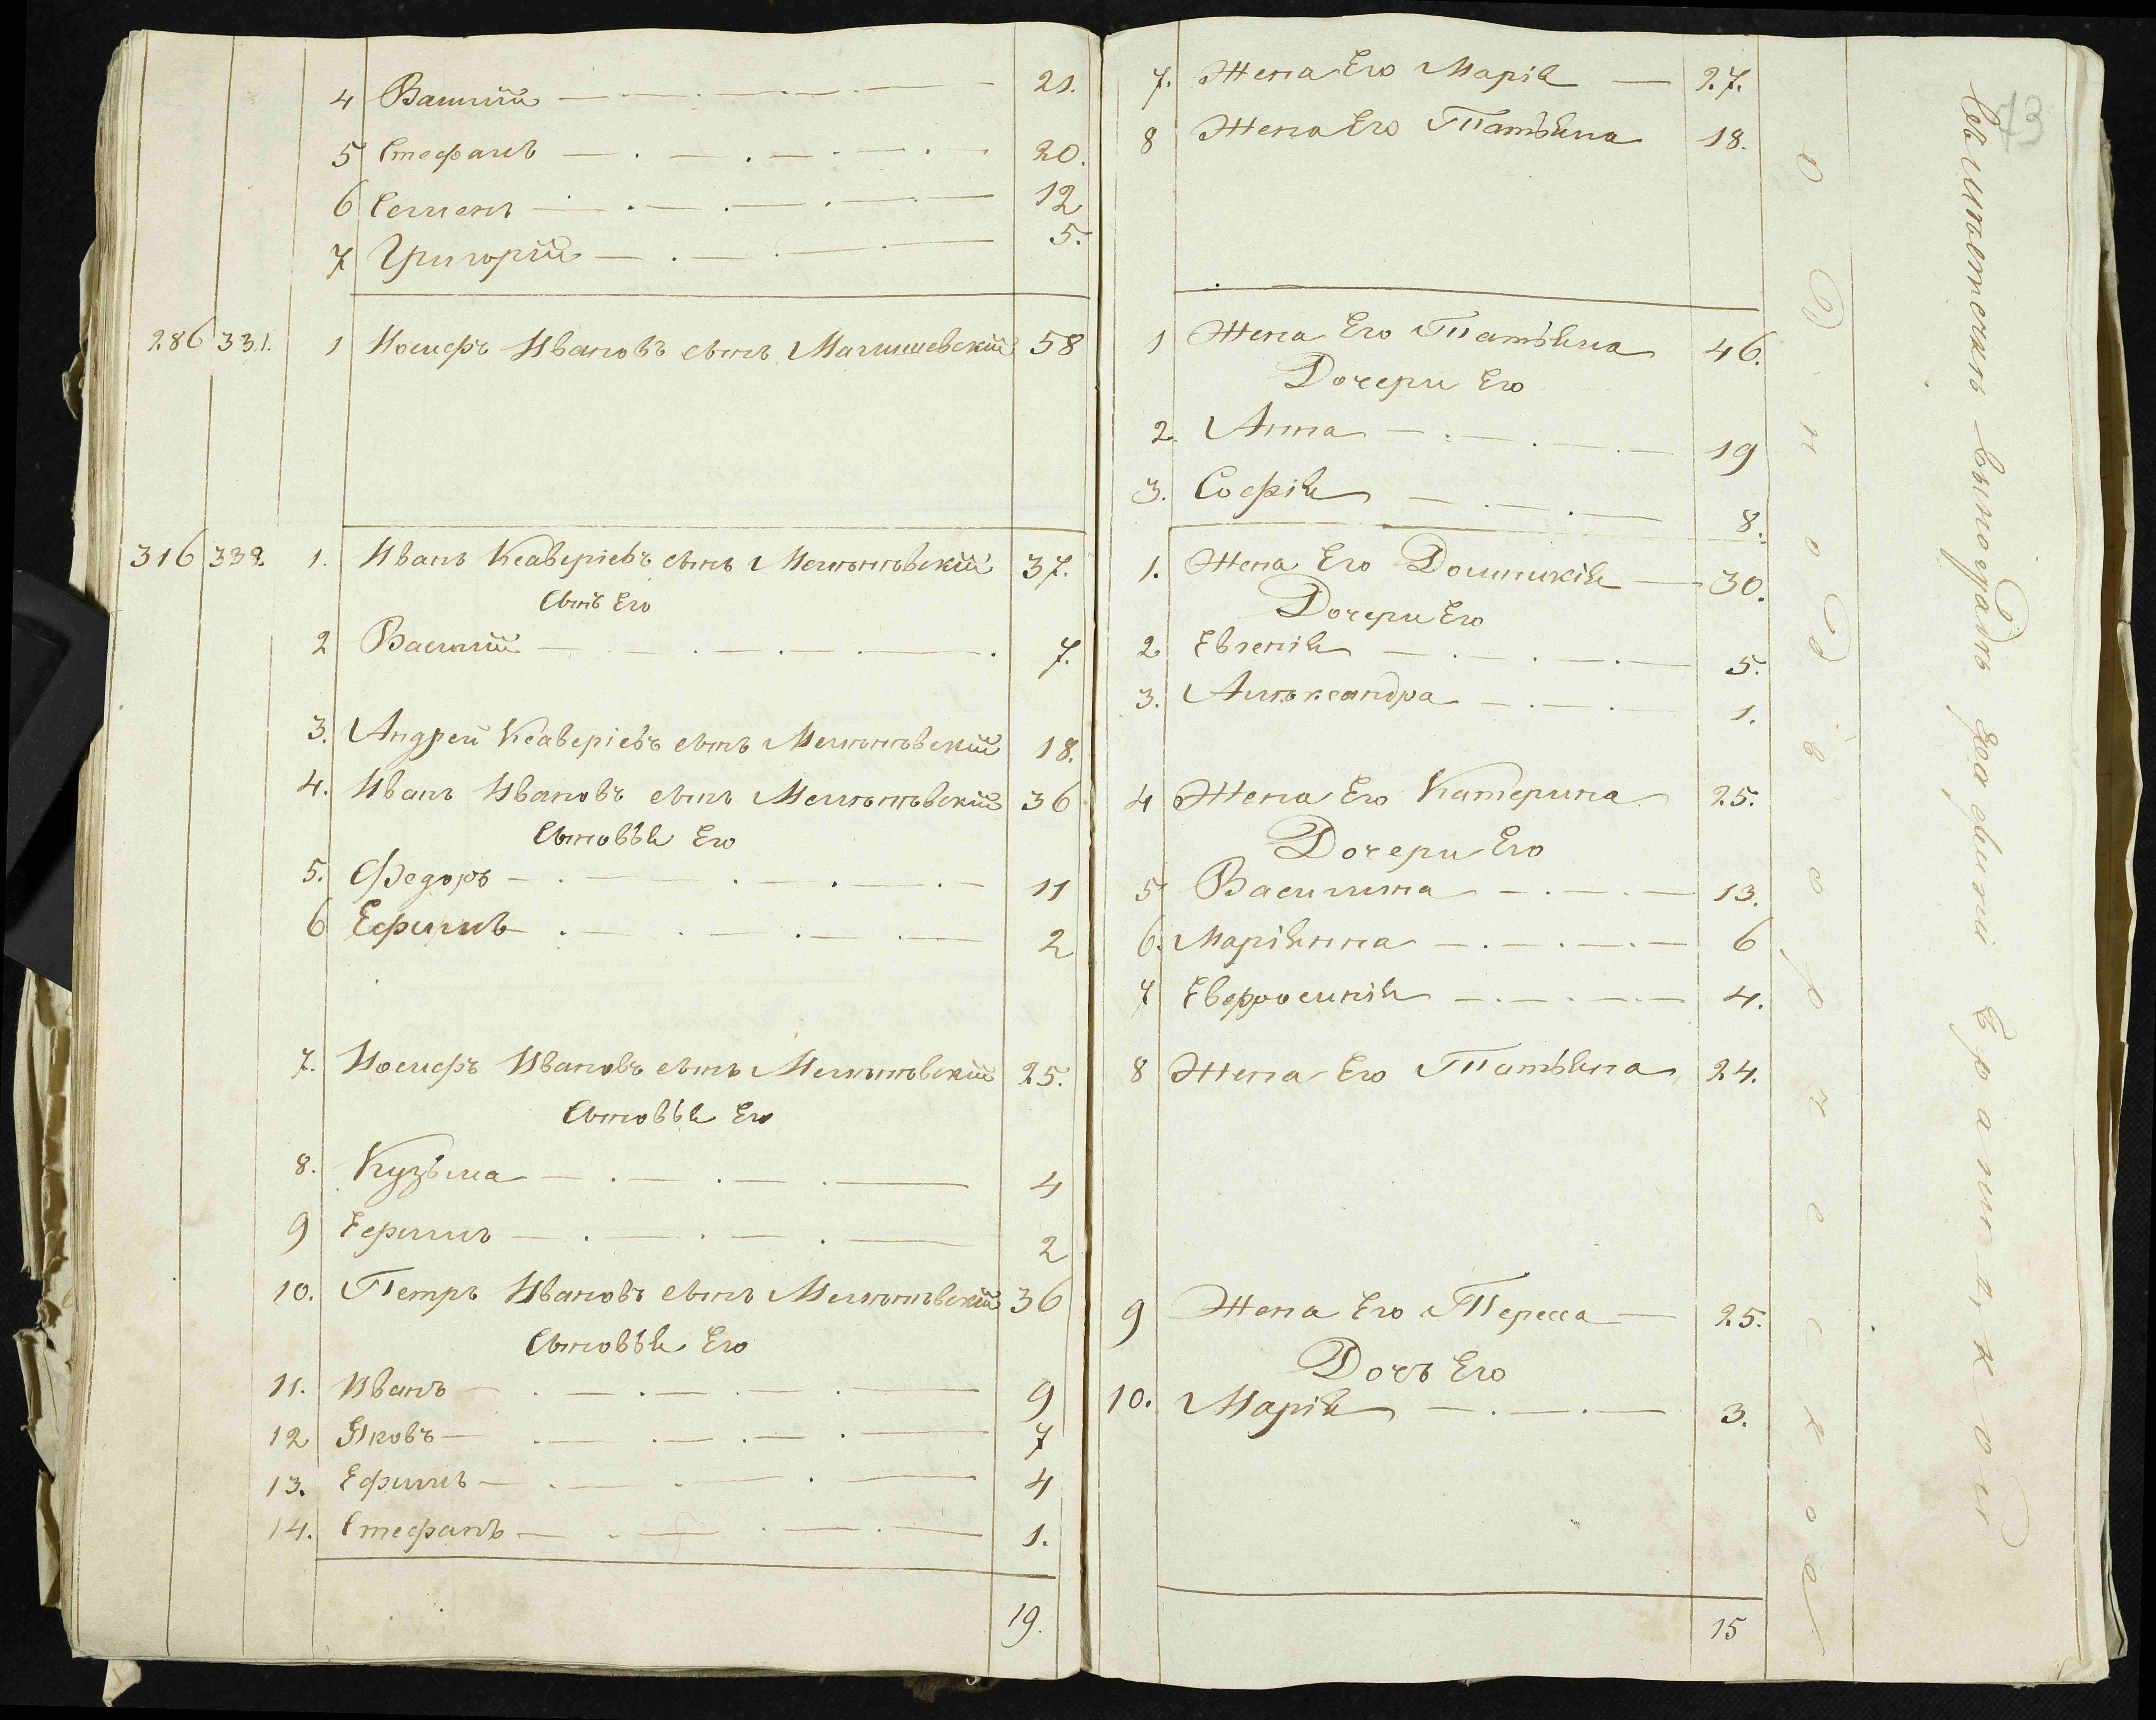 4 Василий 21.
5 Стефанъ 20.
6 Семенъ 12
7 Григорий 5.
286 331. 1 Иосифъ Ивановъ сынъ Малишевский 58
316 332. 1. Иванъ Ксаверіевъ сынъ 37.
Сынъ Его
2 Василий 7.
3. Андрей Ксаверіевъ сынъ 18.
4. Иванъ Ивановъ сынъ 36
Сыновья Его
5. Федоръ 11
6 Ефимъ 2
7. Иосифъ Ивановъ сынъ 25.
Сыновья Его
8. Кузьма 4
9 Ефимъ 2
10. Петръ Ивановъ сынъ 36
Сыновья Его
11. Иванъ 9
12 Яковъ 7
13. Ефимъ 4
14. Стефанъ 1.
19.
73
7. Жена Его Марія 27.
8 Жена Его Татьяна 18.
1 Жена Его Татьяна 46.
Дочери Его
2. Анна 19
3. Софія 8.
1. Жена Его Доминикія 30.
Дочери Его
2 Евгенія 5.
3. Александра 1.
4 Жена Его Катерина 25.
Дочери Его
5 Василина 13.
6. Маріянна 6
7 Евфросинія 4.
8 Жена Его Татьяна 24.
9 Жена Его Тереса 25.
Дочь Его
10. Марія 3.
15